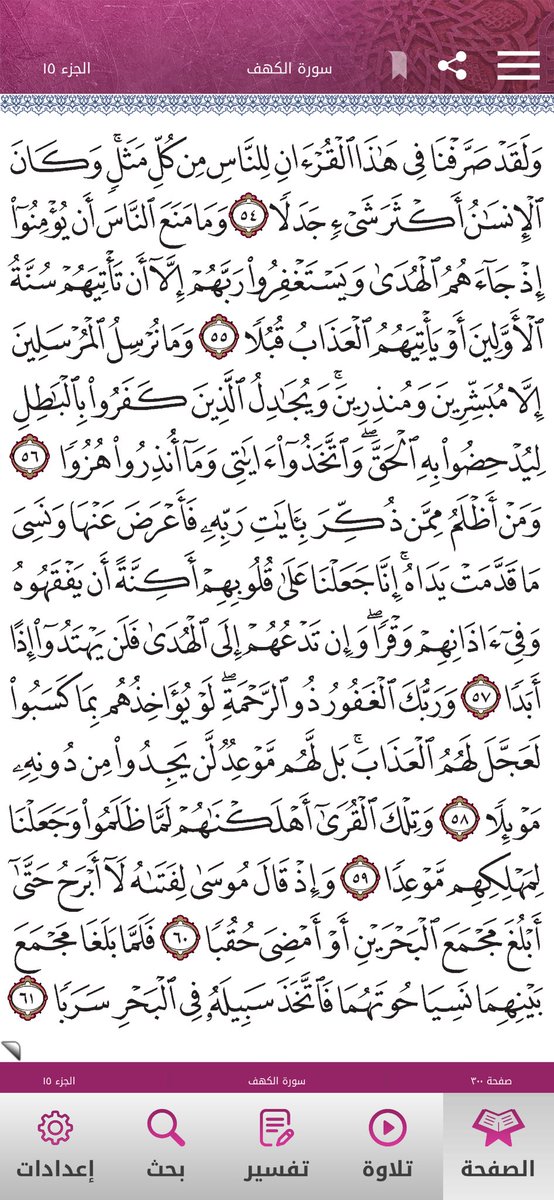 سورة الكهف الجزء ١٥
وَلَقَدْ صَرَّفْنَا فِي هَٰذَا الْقُرْءَانِ لِلنَّاسِ مِن كُلِّ مَثَلٍ ۚ وَكَانَ
الْإِنسَٰنُ أَكْثَرَ شَيْءٍ جَدَلًا ٥٤ وَمَا مَنَعَ النَّاسَ أَن يُؤْمِنُوٓا۟
إِذْ جَآءَهُمُ الْهُدَىٰ وَيَسْتَغْفِرُوا۟ رَبَّهُمْ إِلَّآ أَن تَأْتِيَهُمْ سُنَّةُ
الْأَوَّلِينَ أَوْ يَأْتِيَهُمُ الْعَذَابُ قُبُلًا ٥٥ وَمَا نُرْسِلُ الْمُرْسَلِينَ
إِلَّا مُبَشِّرِينَ وَمُنذِرِينَ ۚ وَيُجَٰدِلُ الَّذِينَ كَفَرُوا۟ بِالْبَٰطِلِ
لِيُدْحِضُوا۟ بِهِ الْحَقَّ ۖ وَاتَّخَذُوٓا۟ ءَايَٰتِي وَمَآ أُنذِرُوا۟ هُزُوًا ٥٦
وَمَنْ أَظْلَمُ مِمَّن ذُكِّرَ بِـَٔايَٰتِ رَبِّهِۦ فَأَعْرَضَ عَنْهَا وَنَسِيَ
مَا قَدَّمَتْ يَدَاهُ ۚ إِنَّا جَعَلْنَا عَلَىٰ قُلُوبِهِمْ أَكِنَّةً أَن يَفْقَهُوهُ
وَفِيٓ ءَاذَانِهِمْ وَقْرًا ۖ وَإِن تَدْعُهُمْ إِلَى الْهُدَىٰ فَلَن يَهْتَدُوٓا۟ إِذًا
أَبَدًا ٥٧ وَرَبُّكَ الْغَفُورُ ذُو الرَّحْمَةِ ۖ لَوْ يُؤَاخِذُهُم بِمَا كَسَبُوا۟
لَعَجَّلَ لَهُمُ الْعَذَابَ ۚ بَل لَّهُم مَّوْعِدٌ لَّن يَجِدُوا۟ مِن دُونِهِۦ
مَوْئِلًا ٥٨ وَتِلْكَ الْقُرَىٰٓ أَهْلَكْنَٰهُمْ لَمَّا ظَلَمُوا۟ وَجَعَلْنَا
لِمَهْلِكِهِم مَّوْعِدًا ٥٩ وَإِذْ قَالَ مُوسَىٰ لِفَتَىٰهُ لَآ أَبْرَحُ حَتَّىٰٓ
أَبْلُغَ مَجْمَعَ الْبَحْرَيْنِ أَوْ أَمْضِيَ حُقُبًا ٦٠ فَلَمَّا بَلَغَا مَجْمَعَ
بَيْنِهِمَا نَسِيَا حُوتَهُمَا فَاتَّخَذَ سَبِيلَهُۥ فِي الْبَحْرِ سَرَبًا ٦١
صفحة ٣٠٠ سورة الكهف الجزء ١٥
الصفحة تلاوة تفسير بحث إعدادات